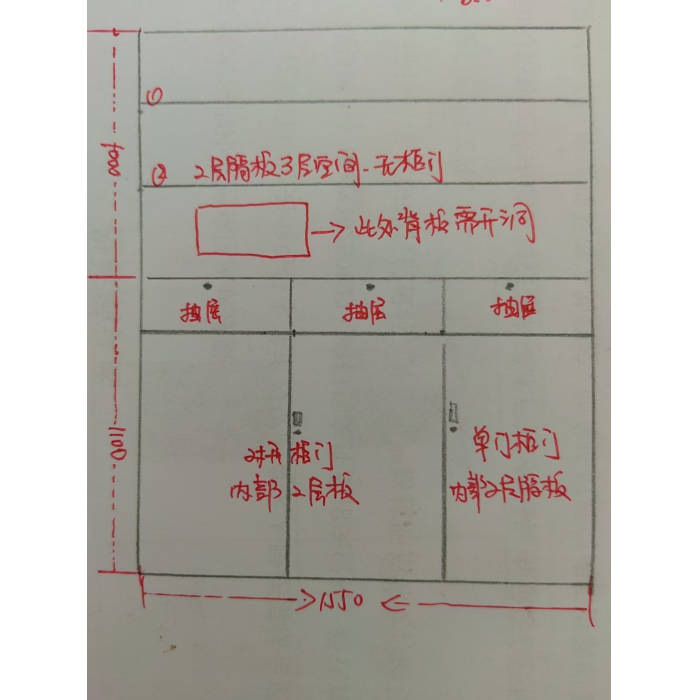 ①
② 2层隔板3层空间-无柜门
→此处背板需开洞
抽屉
抽屉
抽屉
1100
对开柜门
内部2层板
单门柜门
内部2层隔板
1550